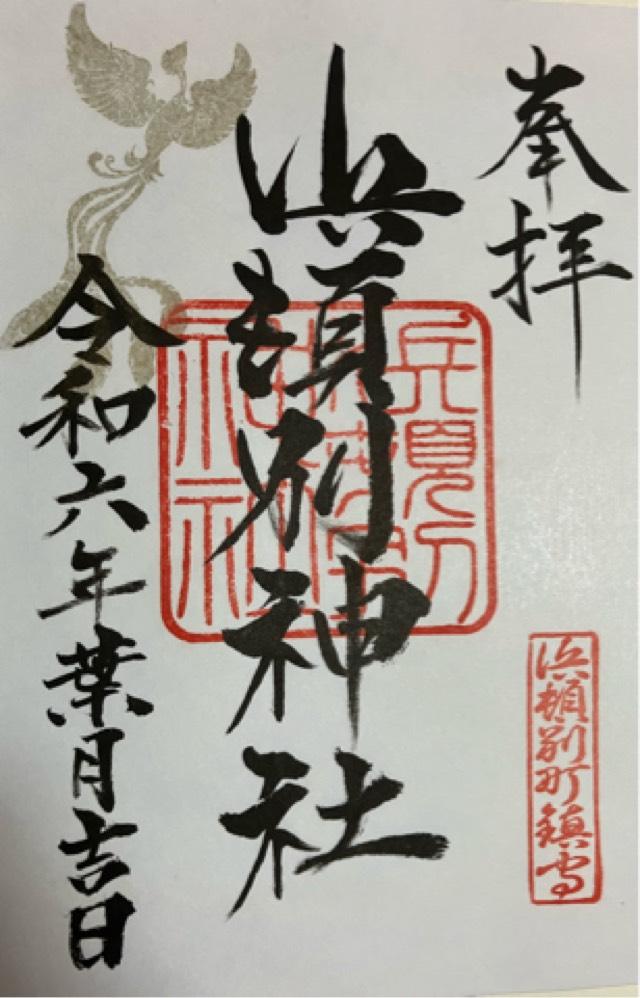 奉拝
浜頓別神社
浜頓別町鎮守
令和六年葉月吉日